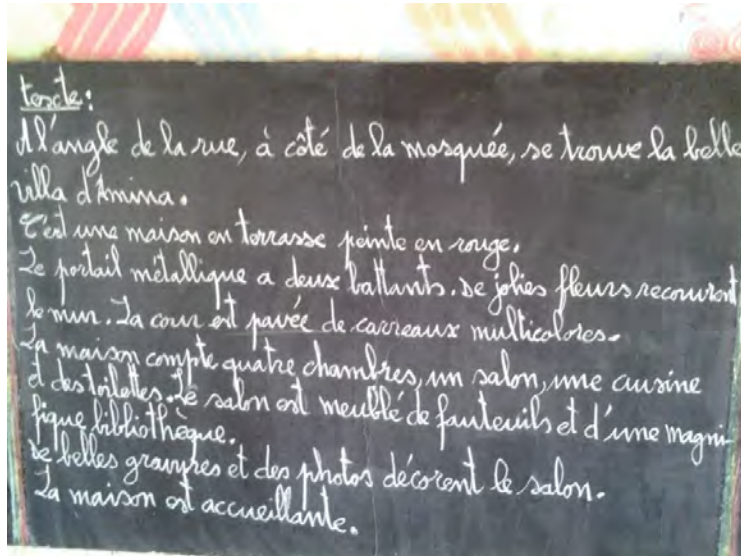 texte :
A l'angle de la rue, à côté de la mosquée, se trouve la belle
villa d'Amina.
C'est une maison en terrasse peinte en rouge.
Le portail métallique a deux battants. De jolies fleurs recouvrent
le mur. La cour est pavée de carreaux multicolores.
La maison compte quatre chambres, un salon, une cuisine
et des toilettes. Le salon est meublé de fauteuils et d'une magni-
fique bibliothèque.
De belles gravures et des photos décorent le salon.
La maison est accueillante.